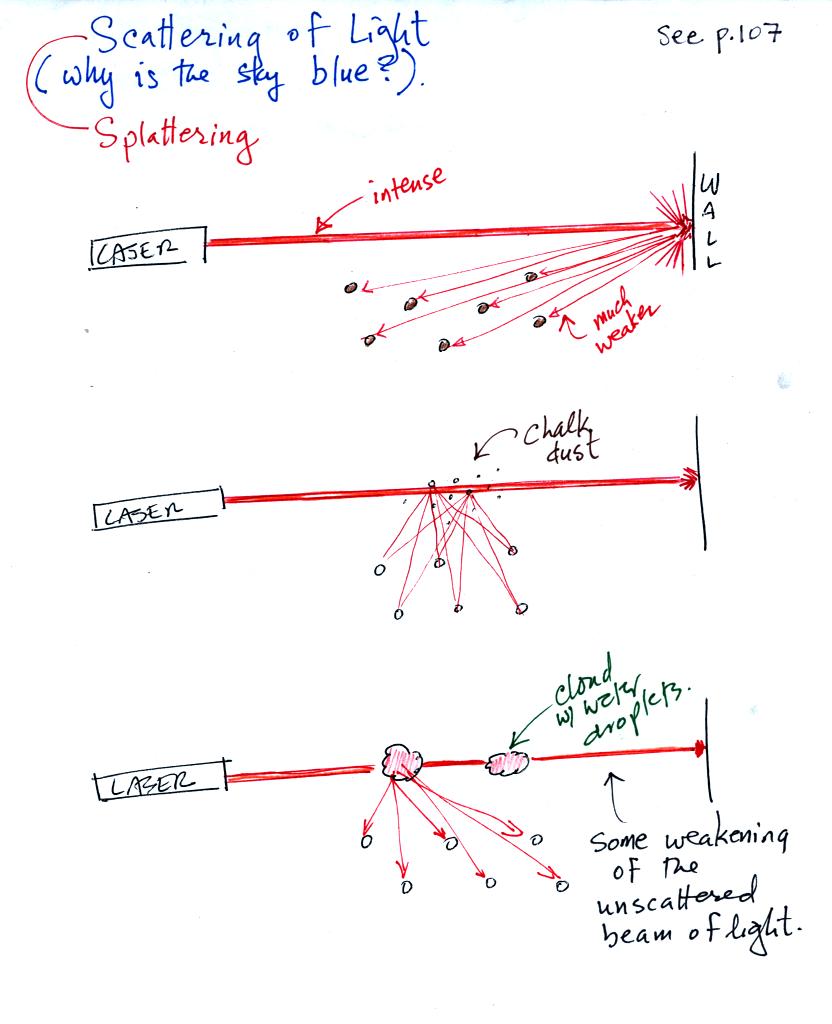 Scattering of Light
See p.107
(why is the sky blue?).
Splattering
intense
WALL
LASER
much
weaker
Chalk
dust
LASER
cloud
w/ water
droplets.
LASER
Some weakening
of the
unscattered
beam of light.